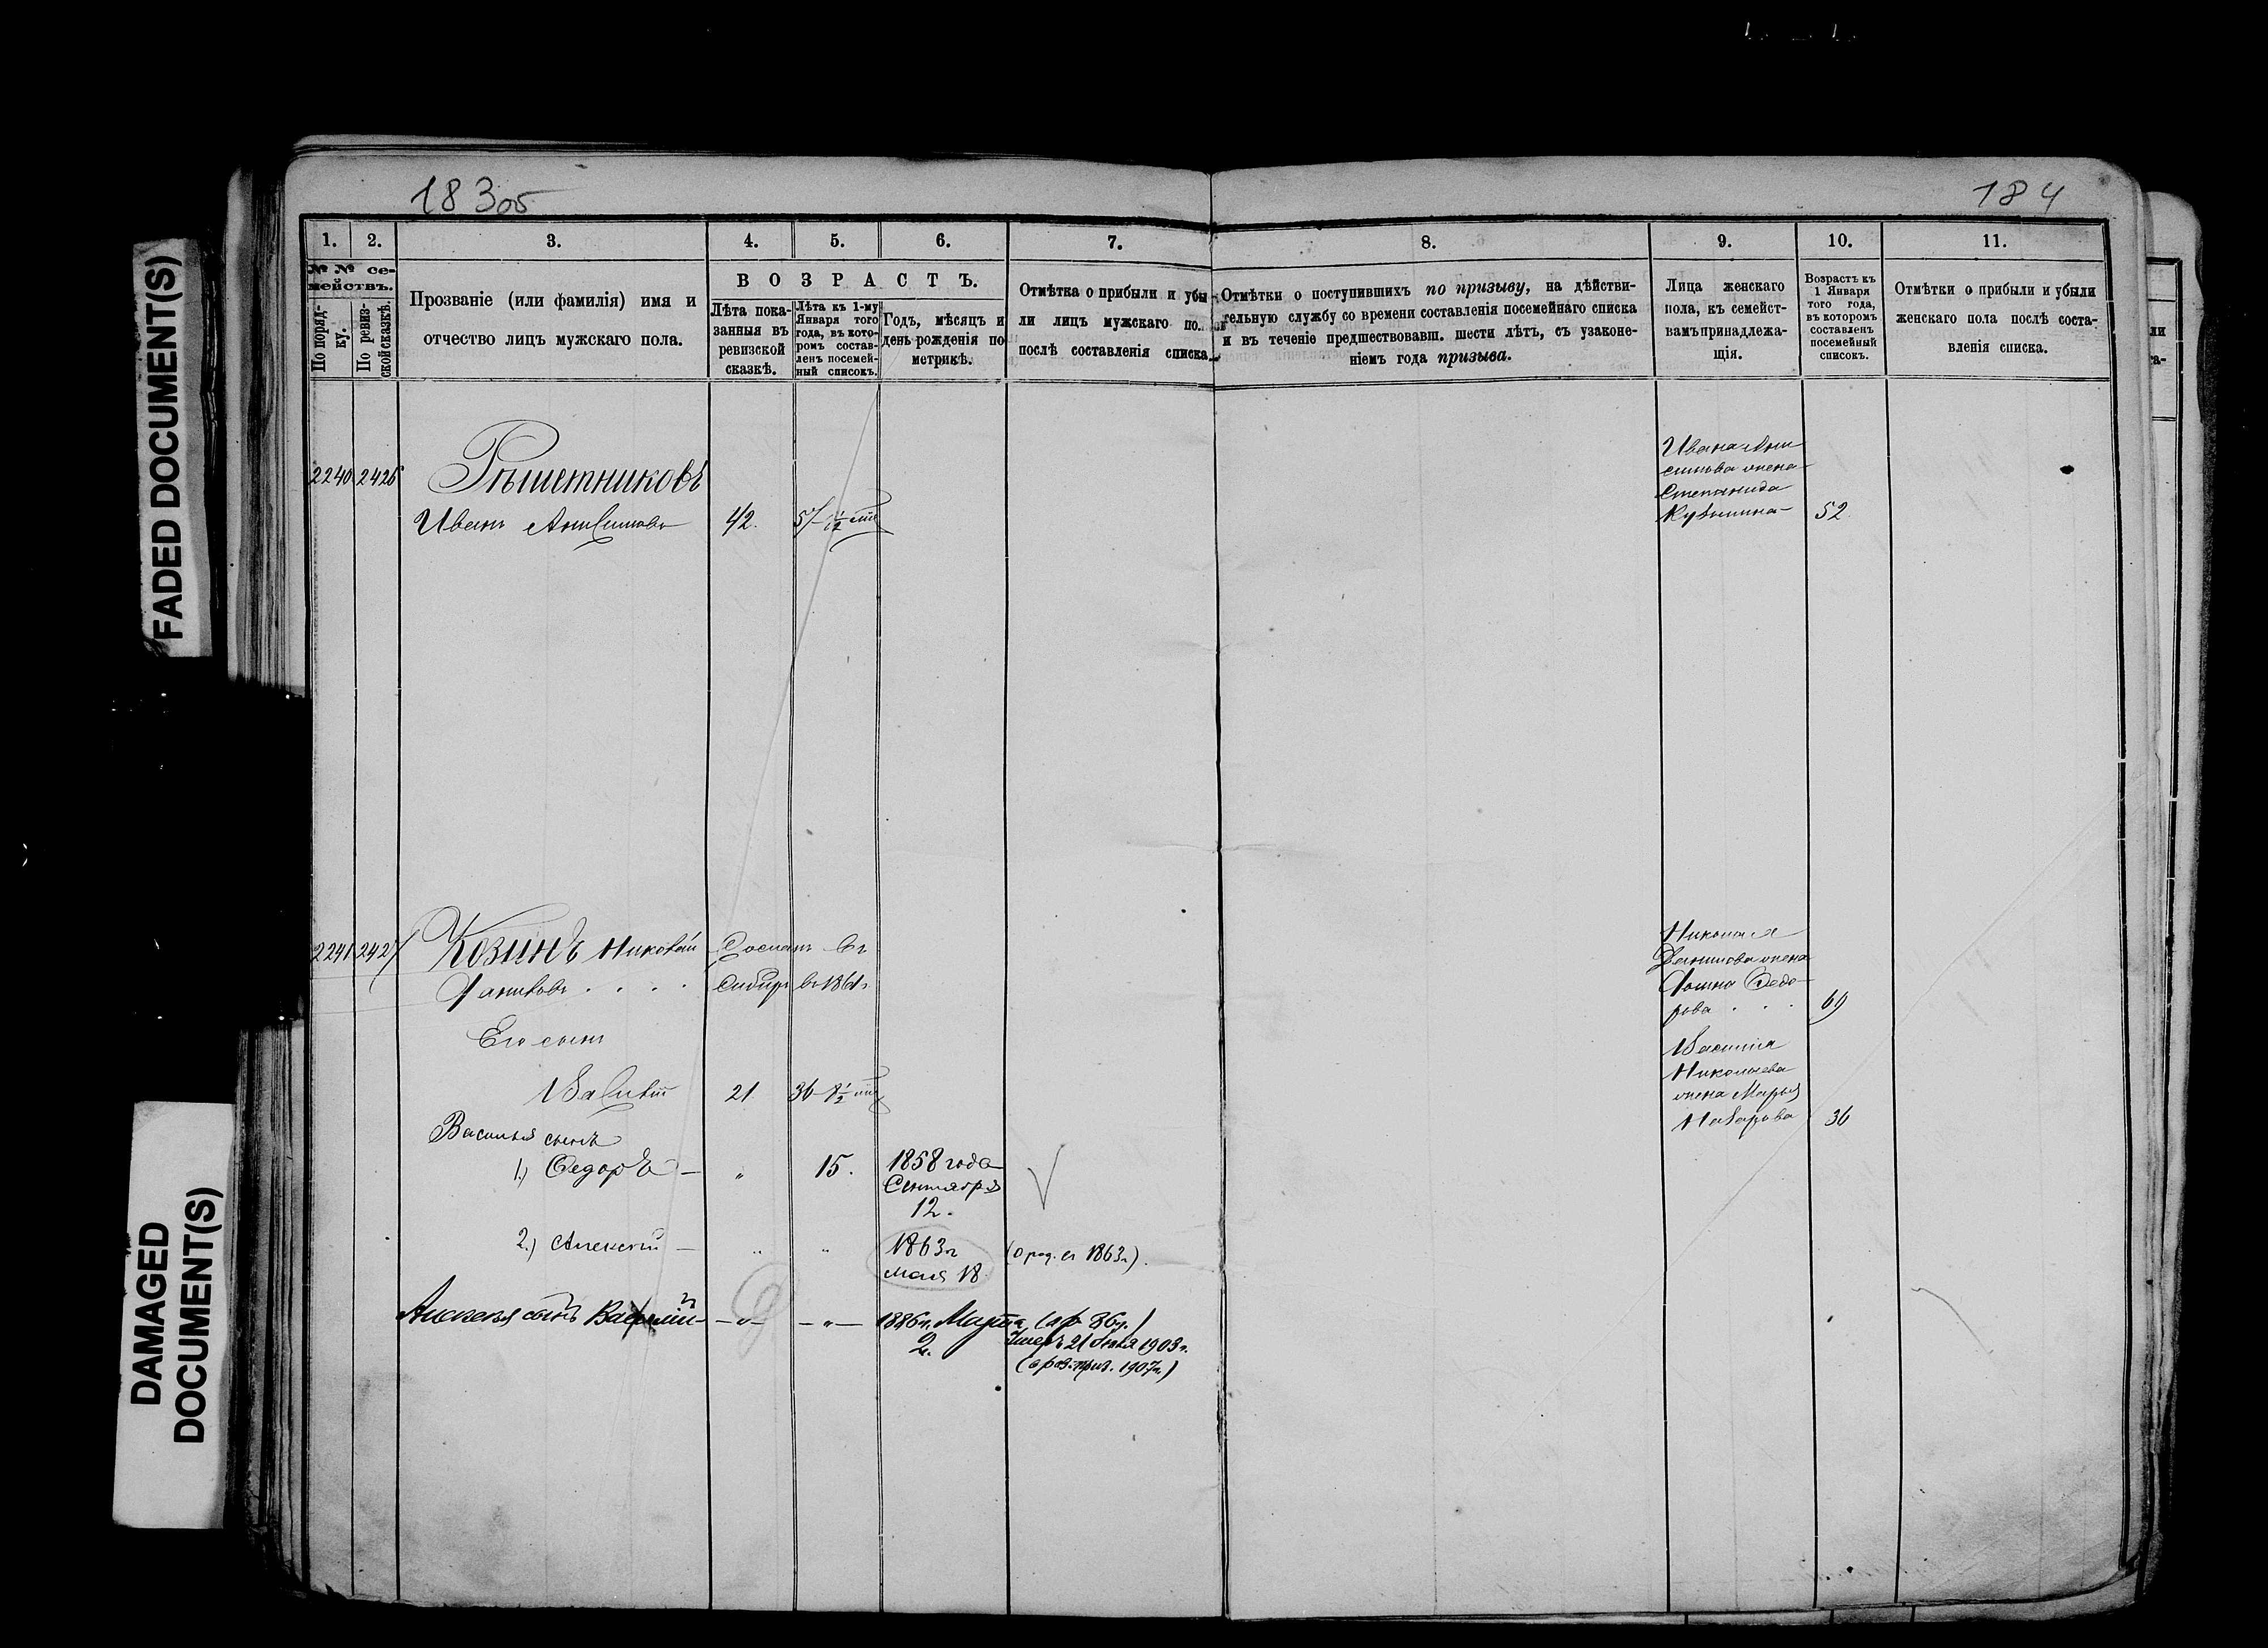 FADED DOCUMENT(S)
DAMAGED
DOCUMENT(S)
183об
184
1. 2. 3. 4. 5. 6. 7. 8. 9. 10. 11.
№ № се-
мействъ.
По поряд-
ку.
По ревиз-
ской сказкѣ.
Прозваніе (или фамилія) имя и
отчество лицъ мужскаго пола.
ВОЗРАСТЪ.
Лѣта пока-
занныя въ
ревизской
сказкѣ.
Лѣта къ 1-му
Января того
года, въ кото-
ромъ состав-
ленъ посемей-
ный списокъ.
Годъ, мѣсяцъ и
день рожденія по
метрикѣ.
Отмѣтка о прибыли и убы-
ли лицъ мужскаго по..
послѣ составленія списка
Отмѣтки о поступившихъ по призыву, на дѣйстви-
тельную службу со времени составленія посемейнаго списка
и въ теченіе предшествовавш. шести лѣтъ, съ узаконе-
ніемъ года призыва.
Лица женскаго
пола, къ семейст-
вамъ принадлежа-
щія.
Возрастъ къ
1 Января
того года,
въ которомъ
составленъ
посемейный
списокъ.
Отмѣтки о прибыли и убыли
женскаго пола послѣ соста-
вленія списка.
2240 2426 Рѣшетниковъ
Иванъ Анисимовъ 42. 57 1/2
Ивана Ани
симова жена
Степанида
Кузьмина 52
2241 2427 Козинъ Николай Сосланъ въ
Даниловъ . . . . Сибирь въ 1861г
Николая
Данилова жена
Федо-
рова . . 69
Его сынъ
Василій 21 36 1/2
Василія
Николаева
жена Марья
Назарова 36
Василья сынъ
1.) Федоръ — „ 15. 1858 года
Сентября
12.
2.) Алексѣй — „ „ 1863г (о род. въ 1863г).
мая 18
Алексѣя сынъ Василій — „ — — „ — 1886г. Марта
2.
(а/р 86г.)
Умеръ 21 Іюля 1903г.
(о раз. приз. 1907г.)